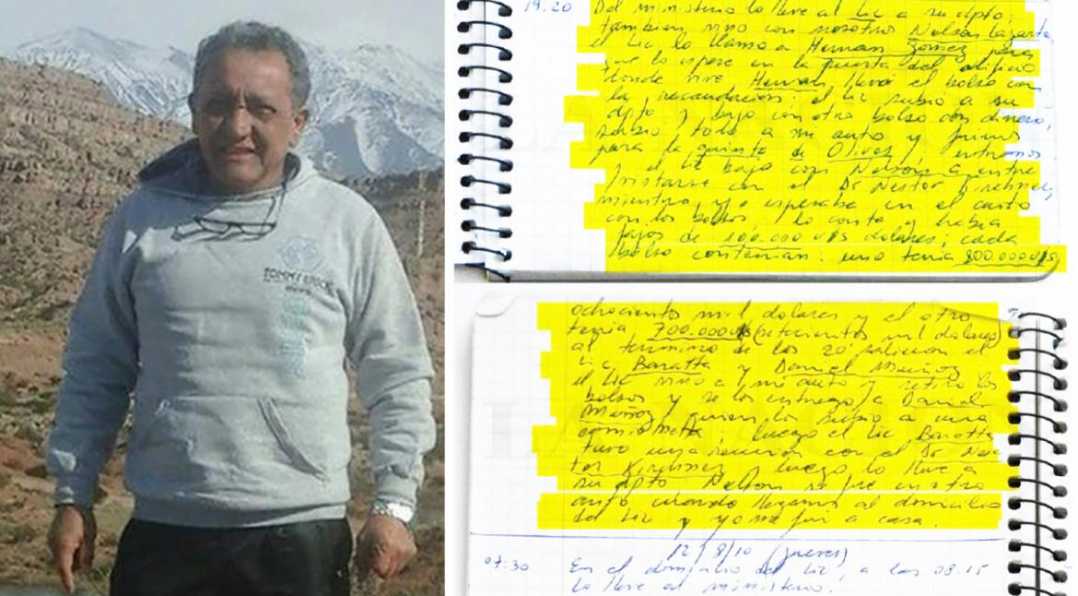 TOMMY
19.20 Del ministerio lo lleve al Lic a su dpto,
tambien vino con nosotro Nelson Lazarte
el Lic lo llamo a Hernan Gomez para
que lo espere en la puerta del edificio
donde vive Hernan llevó el bolso con
la recaudación; el Lic subio a su
dpto y bajo con otro bolso con dinero,
subio todo a mi auto y fuimos
para la quinta de Olivos, entramos
y el Lic bajo con Nelson a entre
vistarse con el Dr Nestor Kirchner,
mientras yo esperaba en el auto
con los bolsos lo conte y habia
fajos de 100.000 U$S dolares; cada
bolso contenian: uno tenia 800.000 U$S
ochocientos mil dolares y el otro
tenia 700.000 (setecientos mil dolares)
al termino de los 20' salieron el
Lic Baratta y Daniel Muñoz
el Lic vino a mi auto y retiro los
bolsos y se los entrego a Daniel
Muñoz quien lo subio a una
camioneta; luego el Lic Baratta
tuvo una reunion con el Dr Nes
tor Kirchner, luego lo lleve a
su dpto Nelson se fue en otro
auto cuando llegamos al domicilio
del Lic y yo me fui a casa.
12/8/10 (jueves)
07:30 En el domicilio del Lic, a las 08.15
lo lleve al ministerio.